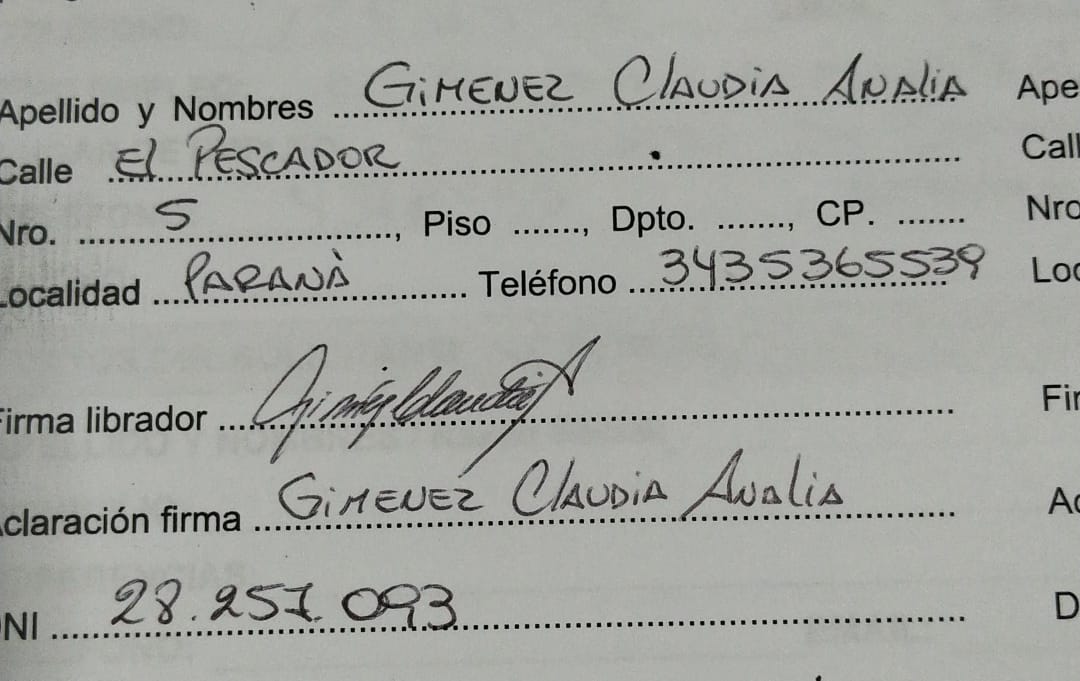 Apellido y Nombres GiMENEZ ClAUDiA ANAliA Ape
Calle El PESCADOR Call
Nro. 5, Piso ......., Dpto. ......., CP. ....... Nro
Localidad PARANÀ Teléfono 3435365539 Loc
Firma librador Giménez Claudia A Fir
Aclaración firma GiMENEZ ClAUDiA ANAliA Ac
DNI 28.257.093 D